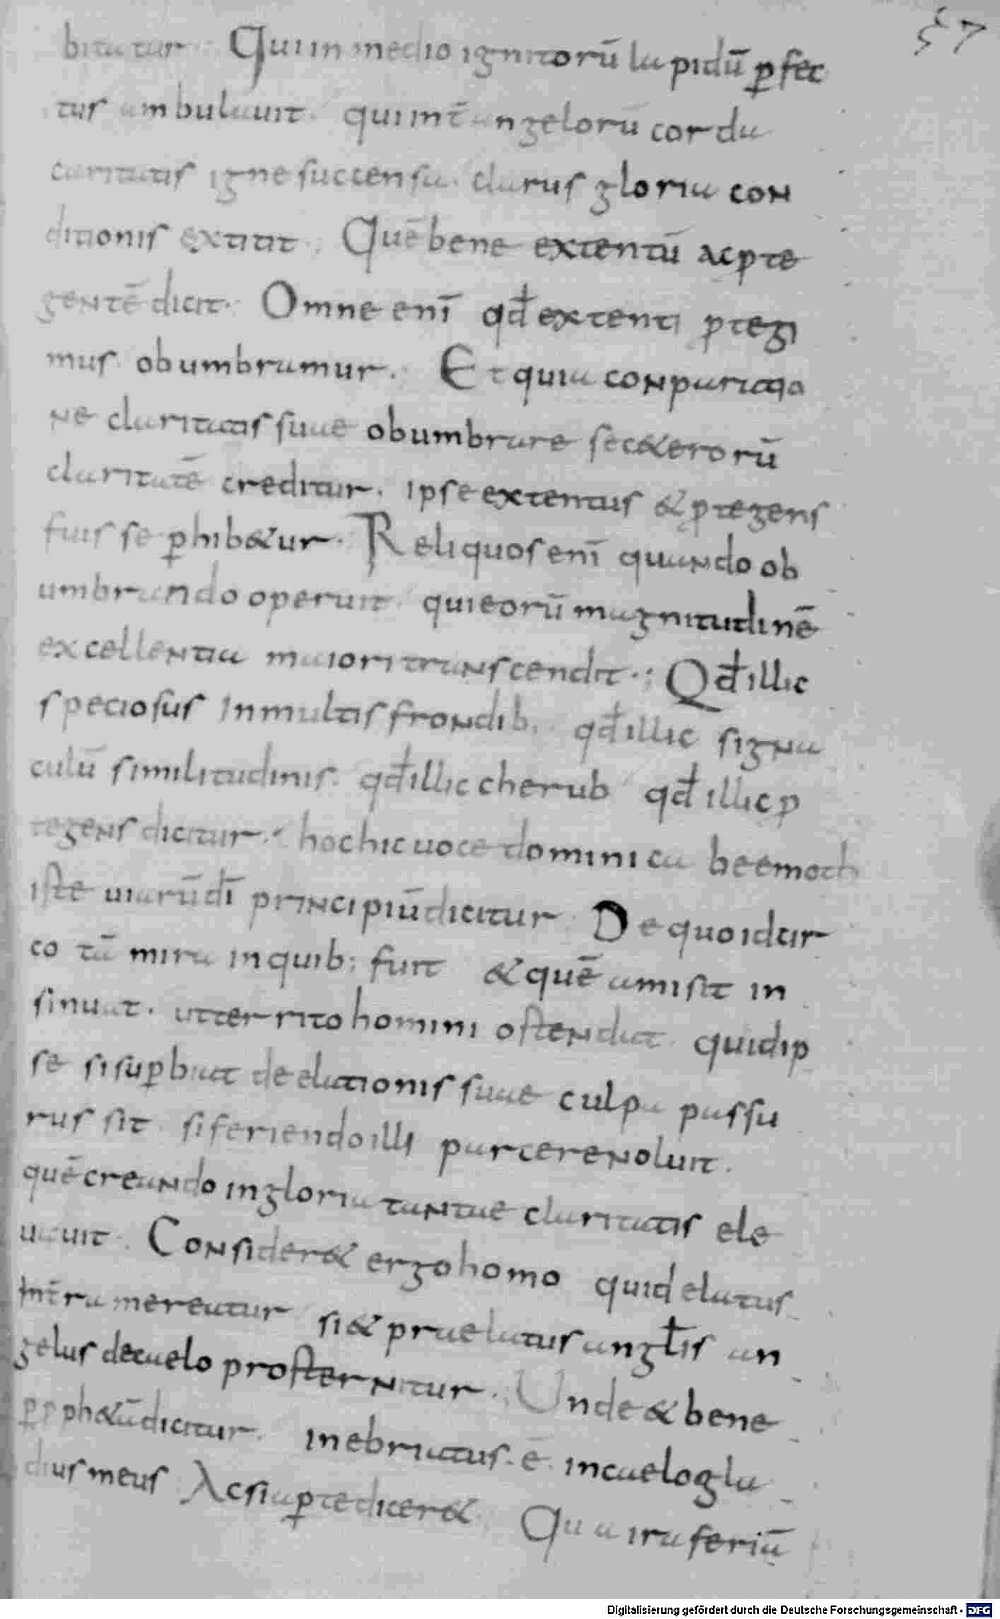 57
bitatur. Qui in medio ignitorū lapidū ꝑfec
tus ambulavit. qui int̄ angelorū corda
caritatis igne succensa. clarus gloria con
ditionis extitit; Quē bene extentū ac ꝓte
gentē dicit. Omne enī qđ extenti ꝓtegi
mus obumbramur. Et quia conparatio
ne claritatis suae obumbrare se c&erorū
claritatē creditur. ipse extentus & ꝓtegens
fuisse ꝑhib&ur. Reliquos enī quando ob
umbrando operuit. qui eorū magnitudinē
excellentia maiori transcendit.; Qđ illic
speciosus in multis frondib; qđ illic signa
culū similitudinis. qđ illic cherub qđ illic ꝓ
tegens dicitur. hoc hic uoce dominica beemoth
iste uiarū dī principiū dicitur. De quo idcir
co tā mira in quib; fuit & quē amisit in
sinuat. ut territo homini ostendat quid ip
se si suꝑbiat de elationis suae culpa passu
rus sit si feriendo illi parcere noluit.
quē creando in gloria tantae claritatis ele
uauit. Consider& ergo homo quid elatus
int̄ra mereatur si & praelatus angl̄is an
gelus de caelo prosternitur.; Unde & bene
ꝑ ꝓph&ā dicitur. inebriatus. ē. in caelo gla
dius meus Ac si aꝑte dicer& Qua ira feriā
Digitalisierung gefördert durch die Deutsche Forschungsgemeinschaft - DFG